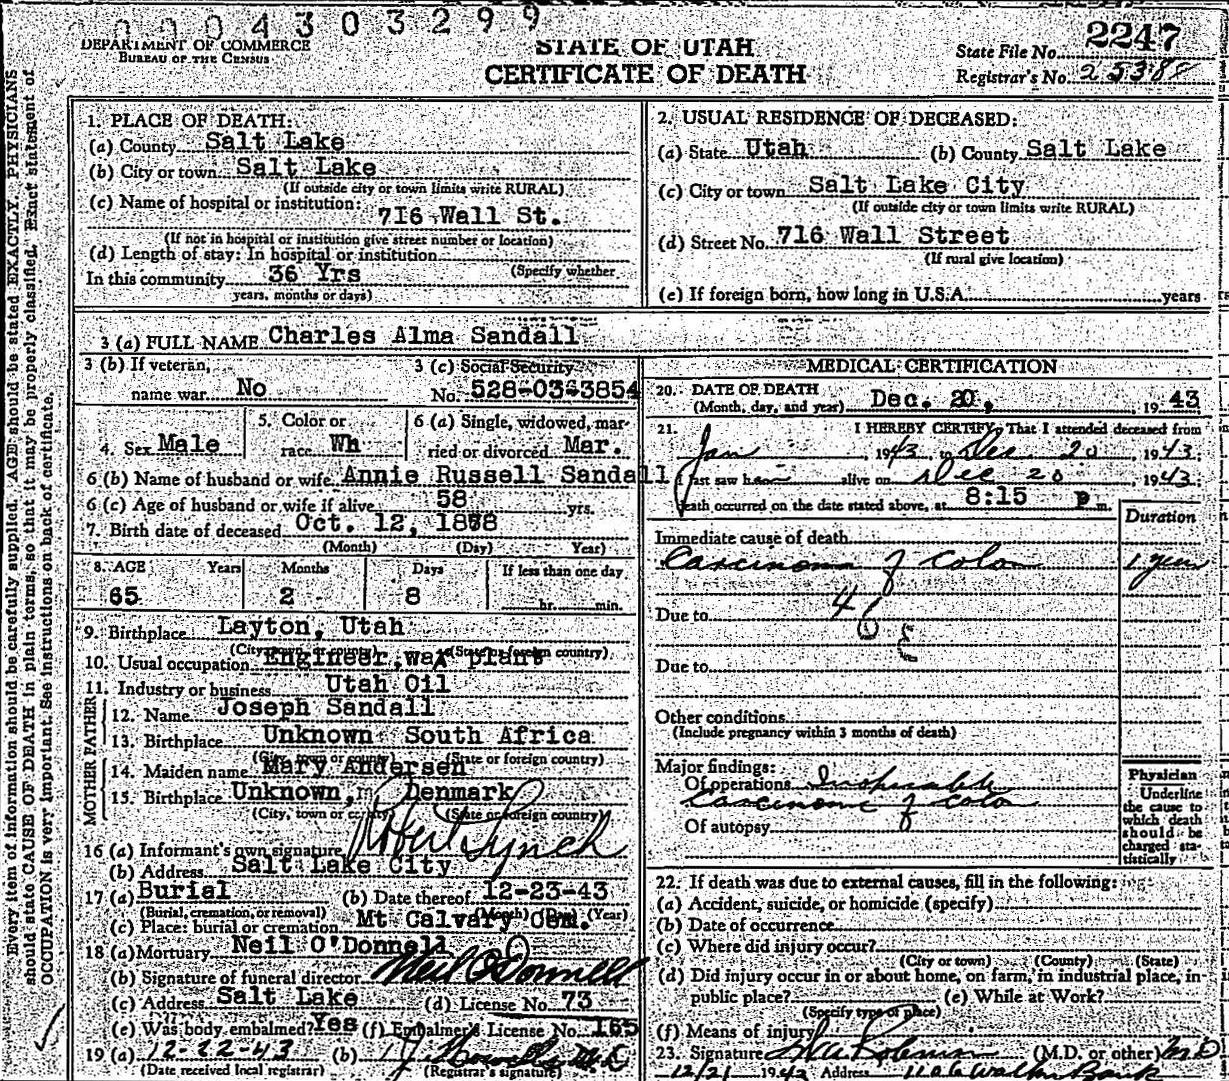 0004303299
DEPARTMENT OF COMMERCE
BUREAU OF THE CENSUS
STATE OF UTAH
CERTIFICATE OF DEATH
State File No. 2247
Registrar's No. 25388
Every item of information should be carefully supplied. AGE should be stated EXACTLY. PHYSICIANS
should state CAUSE OF DEATH in plain terms, so that it may be properly classified. Exact statement of
OCCUPATION is very important. See instructions on back of certificate.
1. PLACE OF DEATH:
(a) County Salt Lake
(b) City or town Salt Lake
(If outside city or town limits write RURAL)
(c) Name of hospital or institution:
716 Wall St.
(If not in hospital or institution give street number or location)
(d) Length of stay: In hospital or institution
In this community 36 Yrs (Specify whether
years, months or days)
2. USUAL RESIDENCE OF DECEASED:
(a) State Utah (b) County Salt Lake
(c) City or town Salt Lake City
(If outside city or town limits write RURAL)
(d) Street No. 716 Wall Street
(If rural give location)
(e) If foreign born, how long in U.S.A. years
3 (a) FULL NAME Charles Alma Sandall
3 (b) If veteran,
name war No
3 (c) Social Security
No. 528-03-3854
4. Sex Male
5. Color or
race Wh
6 (a) Single, widowed, mar-
ried or divorced Mar.
6 (b) Name of husband or wife Annie Russell Sandall
6 (c) Age of husband or wife if alive 58 yrs.
7. Birth date of deceased Oct. 12, 1878
(Month) (Day) Year)
8. AGE Years Months Days If less than one day
65 2 8 hr. min.
9. Birthplace Layton, Utah
(City, town, or county) (State or foreign country)
10. Usual occupation Engineer, wax plant
11. Industry or business Utah Oil
FATHER
12. Name Joseph Sandall
13. Birthplace Unknown South Africa
(City, town or county) (State or foreign country)
MOTHER
14. Maiden name Mary Andersen
15. Birthplace Unknown, Denmark
(City, town or county) (State or foreign country)
16 (a) Informant's own signature Robert Lynch
(b) Address Salt Lake City
17 (a) Burial (b) Date thereof 12-23-43
(Burial, cremation, or removal) (Month) (Day) (Year)
(c) Place: burial or cremation Mt Calvary Cem.
18 (a) Mortuary Neil O'Donnell
(b) Signature of funeral director Neil O'Donnell
(c) Address Salt Lake (d) License No. 73
(e) Was body embalmed? Yes (f) Embalmer's License No. 165
19 (a) 12-22-43 (b) M.D.
(Date received local registrar) (Registrar's signature)
MEDICAL CERTIFICATION
20. DATE OF DEATH
(Month, day, and year) Dec. 20, 1943
21. I HEREBY CERTIFY, That I attended deceased from
Jan, 1943, to Dec. 20, 1943.
I last saw h alive on Dec 20, 1943.
death occurred on the date stated above, at 8:15 p m.
Duration
Immediate cause of death
Carcinoma of colon 1 year
Due to 46 E
Due to
Other conditions
(Include pregnancy within 3 months of death)
Major findings:
Of operations Inoperable
Carcinoma of colon
Of autopsy
Physician
Underline
the cause to
which death
should be
charged sta-
tistically
22. If death was due to external causes, fill in the following:
(a) Accident, suicide, or homicide (specify)
(b) Date of occurrence
(c) Where did injury occur?
(City or town) (County) (State)
(d) Did injury occur in or about home, on farm, in industrial place, in
public place? (e) While at Work?
(Specify type of place)
(f) Means of injury
23. Signature (M.D. or other) M.D
12/21 1943 Address Walker Bank